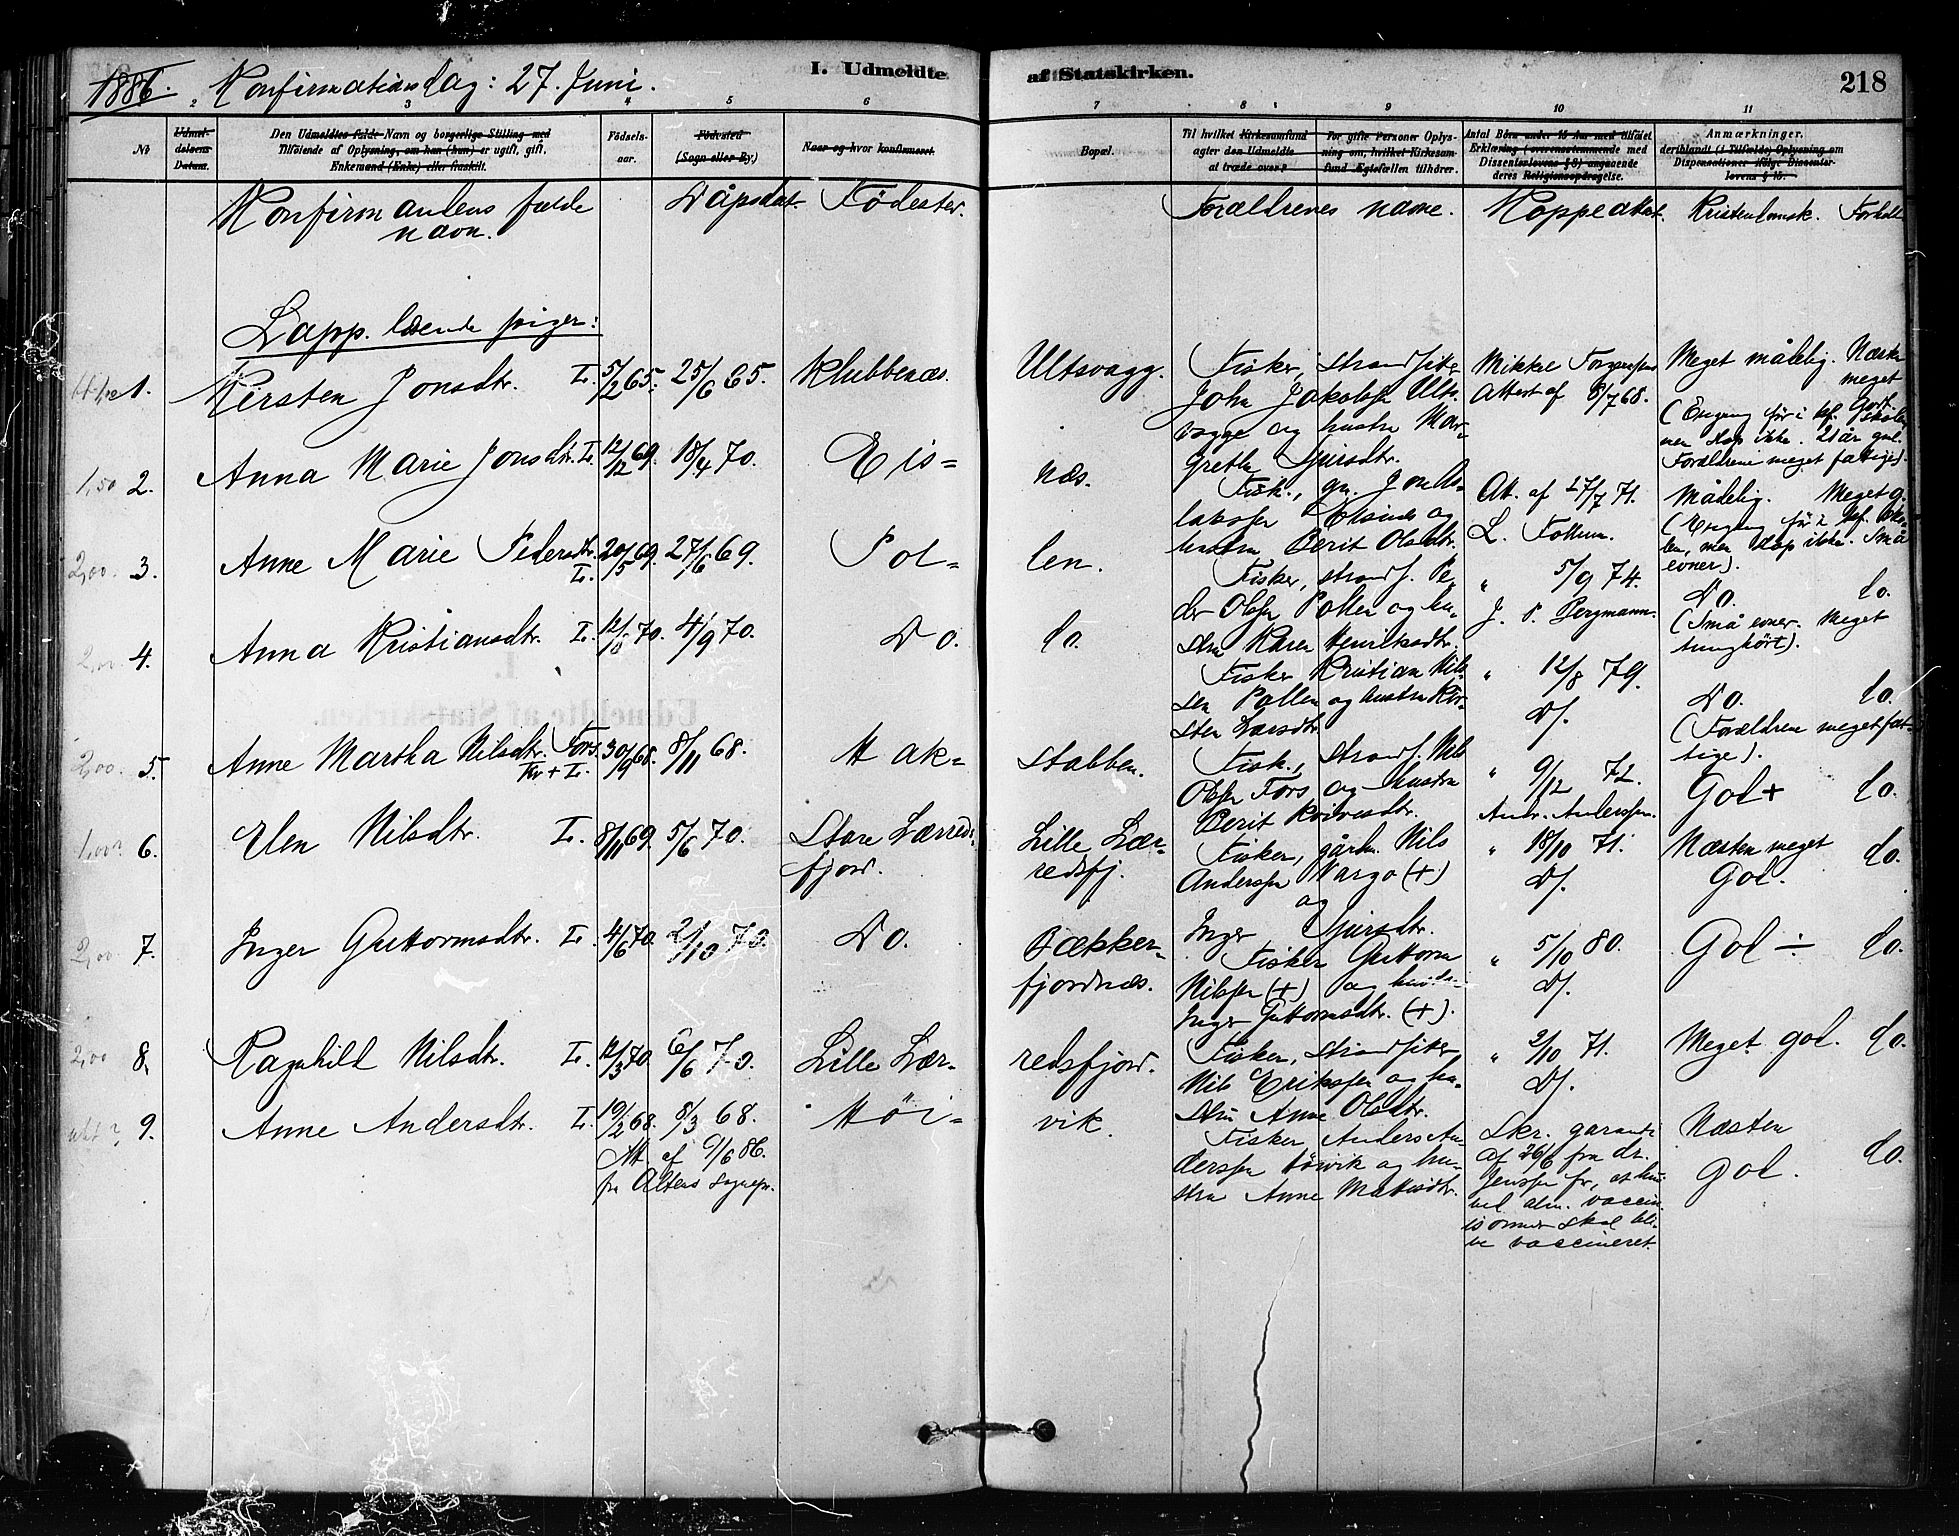 1886. Konfirmationsdag: 27. Juni.
I. Udmeldte af Statskirken. 218
2 3 4 5 6 7 8 9 10 11
No
Udmel-
delsens
Datum.
Den Udmeldtes fulde Navn og borgerlige Stilling med
Tilföiende af Oplysning, om han (hun) er ugift, gift,
Enkemand (Enke) eller fraskilt.
Födsels-
aar.
Födested
(Sogn eller By.)
Naar og hvor konfirmeret.
Bopæl.
Til hvilket Kirkesamfund
agter den Udmeldte
at træde over?
For gifte Personer Oplys-
ning om, hvilket Kirkesam-
fund Ægtefællen tilhører.
Antal Börn under 15 Aar med tilföiet
Erklæring (overensstemmende med
Dissenterlovens § 8) angaaende
deres Religionsopdragelse.
Anmærkninger.
deriblandt (i Tilfælde) Oplysning om
Dispensationer ifölge Dissenter-
lovens § 15.
Konfirmandens fulde
navn.
Dåpsdat. Födested.
Forældrenes navne. Koppeattest. Kristendomsk. Forhold
Lapp. læsende piger:
1. Kirsten Jonsdtr. L. 5/2 65. 25/6 65. Klubbenæs. Ultsvagg.
Fisker, strandsider
John Jakobsen Ults-
vagge og hustru Mar-
grethe Sjursdtr.
Mikkel
Attest af 8/7 68.
Meget målelig. Næsten
meget
God.
(Engang før i kf. skolen
men slap ikke. 21 år gul.
Forældrene meget fattige).
1,50 2. Anna Marie Jonsdtr. L. 12/12 69. 18/4 70. Eis- næs.
Fisk., gm. Jon As-
laksen Eisnæs og
hustru Berit Olsdtr.
Att. af 27/7 71.
L. Follum.
Målelig. Meget g.
(Engang før i kf. sko-
len, men slap ikke. Små
evner).
2,00. 3. Anne Marie Pedersdtr. L. 20/5 69. 27/6 69. Pol- len.
Fisker, strands. Pe-
der Olsen Pollen og hu-
stru Karen Henriksdtr.
" 5/9 74.
J. P. Bergmann.
Do. do.
(Små evner. Meget
tunghört).
2,00. 4. Anna Kristiansdtr. L. 12/8 70. 4/9 70. Do. do.
Fisker Kristian Nils-
sen Pollen og hustru Kir-
sten Larsdtr.
" 12/8 79.
Ds.
Do. do.
(Forældrene meget fat-
tige).
2,00. 5. Anne Martha Nilsdtr. Fors. Kv + L. 30/9 68. 8/11 68. Hak- stabben.
Fisk., strands. Nils
Olsen Fors og hustru
Berit
" 9/12 72.
Andr. Andersen.
God + do.
1,00? 6. Elen Nilsdtr. L. 8/11 69. 5/6 70. Store Lærreds- fjord.
Lille Lær-
redsfj.
Fisker, gårbr. Nils
Andersen Vargo (+)
og
Inger Sjursdtr.
" 18/10 71.
Ds.
Næsten meget
God. do.
2,00. 7. Inger Guttormsdtr. L. 4/6 70. 2/10 70. Do.
Bækker-
fjordnæs.
Fisker Guttorm
Nilsen (+) og hustru
Inger Guttormsdtr. (+).
" 5/10 80.
Ds.
God ÷ do.
2,00 8. Ragnhild Nilsdtr. L. 12/3 70. 6/6 70. Lille Lær- redsfjord.
Fisker, strandsider
Nils Eriksen og hu-
stru Anne Olsdtr.
" 2/10 71.
Ds.
Meget god. do.
9. Anne Andersdtr. L. 19/2 68. 8/3 68. Höi- vik.
Att. af 9/6 86.
fra Altens sognepr.
Fisker Anders An-
dersen Höivik og hu-
stru Anne Mathisdtr.
Skr. garanti
af 26/6 fra dr.
Jenssen for, at hun
ved alm. vaccin.
skal bli-
ve vaccineret.
Næsten
God. do.